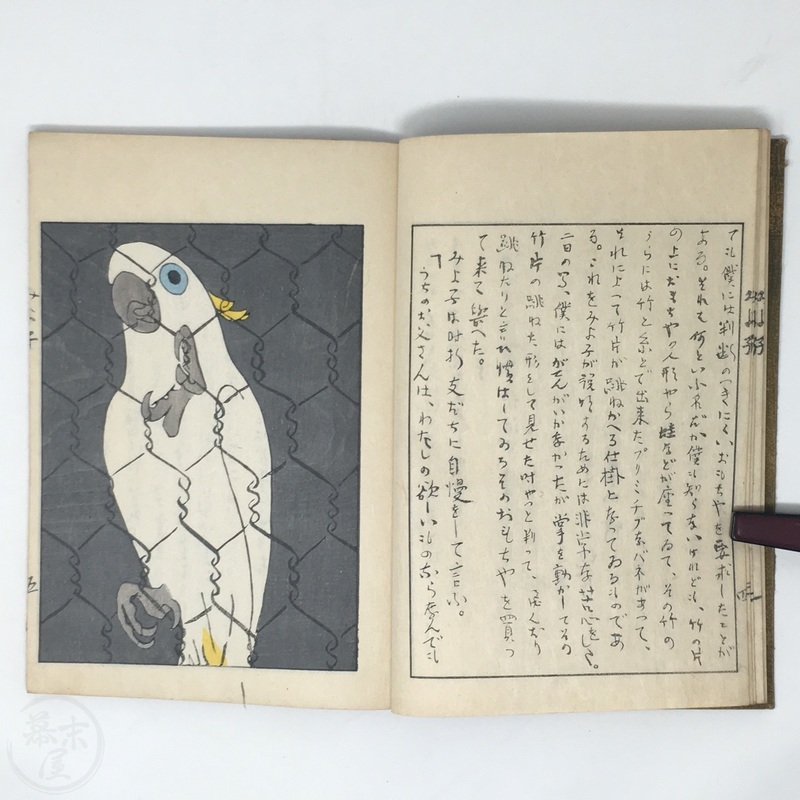 ても僕には判断のつきにくいおもちやを要求したことが
ある。それも何といふ名だか僕も知らないけれども、竹の片
の上におもちやの人形やら蛙などが座つてゐて、その竹の
うらには竹と糸とで出来たプリミチブなバネがあつて、
それによつて竹片が跳ねかへる仕掛となつてゐるものであ
る。これをみよ子が説明するためには非常な苦心をした。
二日の間、僕にはがてんがいかなかつたが掌を動かしてその
竹片の跳ねた形をして見せた时やつと判つて、飛んだり
跳ねたりと言ひ慣はしてゐるそのおもちやを買つ
て来て與へた。
みよ子は时折友だちに自慢をして言ふ。
「うちのお父さんは、わたしの欲しいものならなんでも
みよ子
五
幕末屋